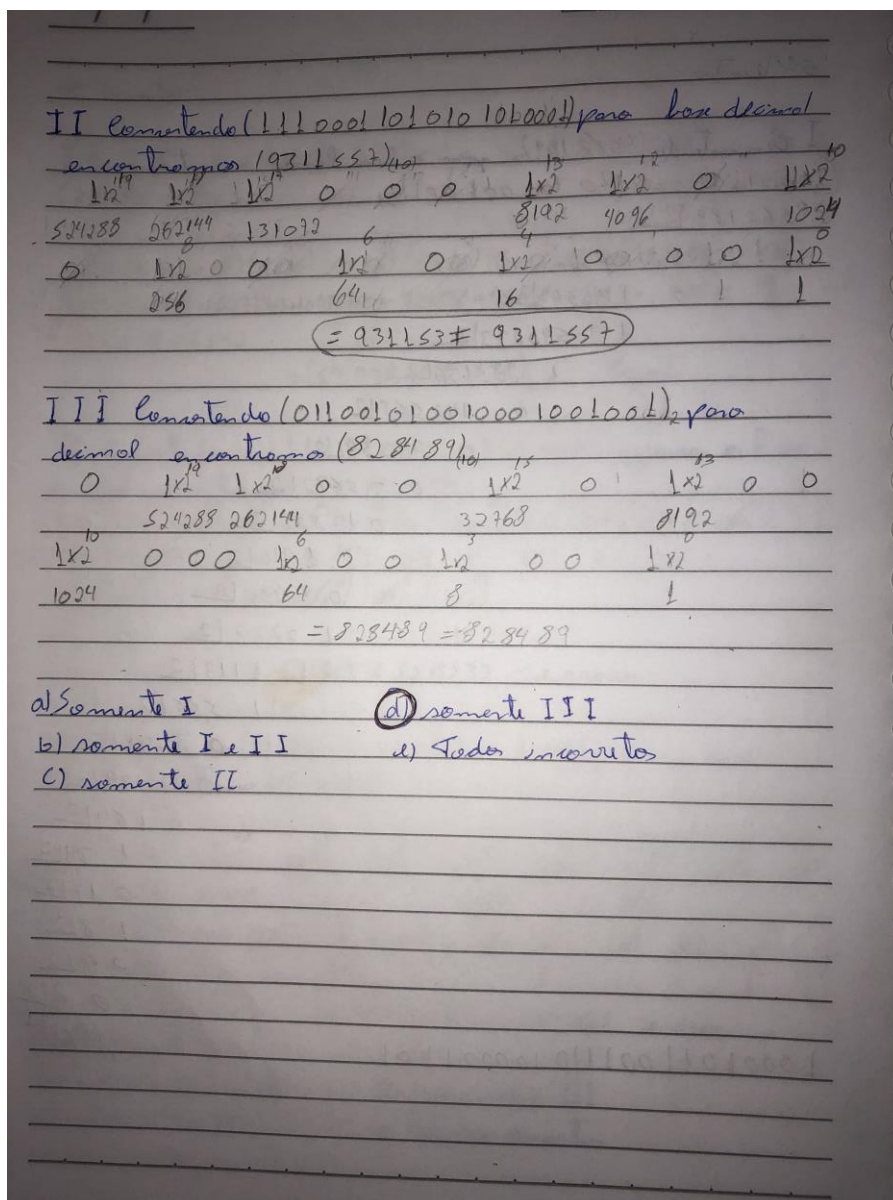 II Convertendo (11100011010101010001) para base decimal
encontramos (9311557)(10)
1x2^19 1x2^18 1x2^17 0 0 0 1x2^13 1x2^12 0 1x2^10
524288 262144 131072 8192 4096 1024
0 1x2^8 0 1x2^6 0 1x2^4 0 0 0 1x2^0
256 64 16 1
= 931153 ≠ 9311557
III Convertendo (011001010010001001001)2 para
decimal encontramos (828489)(10)
0 1x2^19 1x2^18 0 0 1x2^15 0 1x2^13 0 0
524288 262144 32768 8192
1x2^10 0 0 0 1x2^6 0 0 1x2^3 0 0 1x2^0
1024 64 8 1
= 828489 = 828489
a) Somente I d) somente III
b) somente I e II e) Todos incorretos
c) somente II